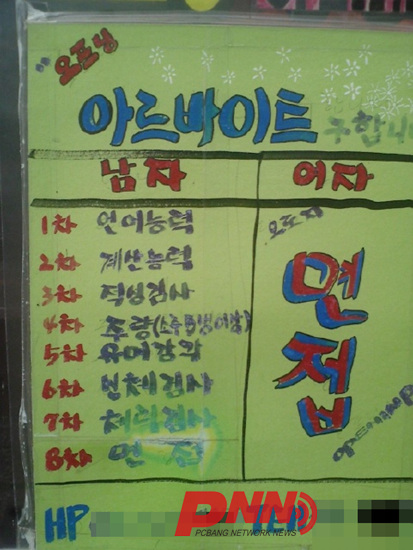 오픈닝
아르바이트 구합니
남자 여자
1차 언어능력
2차 계산능력
3차 적성검사
4차 주량(소주5병이상)
5차 유머감각
6차 신체검사
7차 체력검사
8차 면접
오로지
면접
HP
PNN
PCBANG NETWORK NEWS